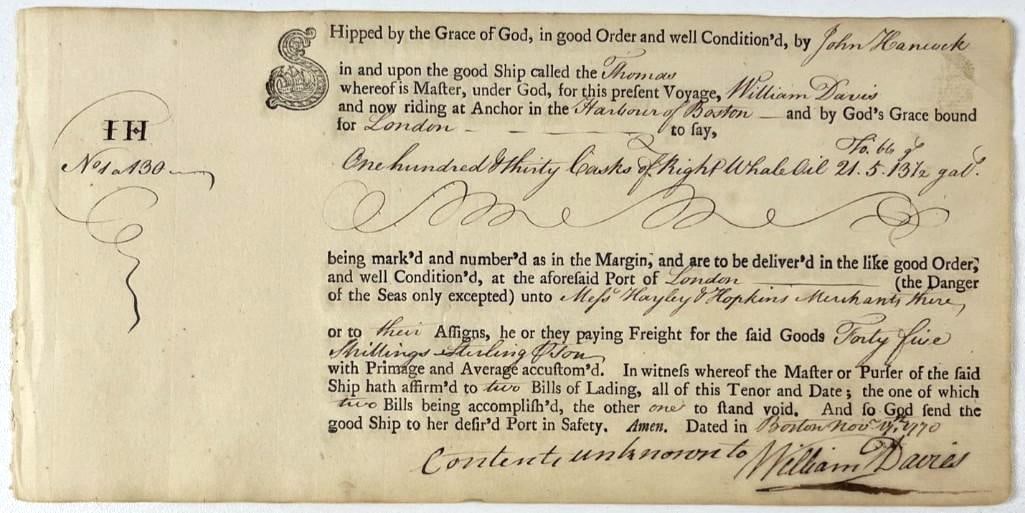 SHipped by the Grace of God, in good Order and well Condition'd, by John Hancock
in and upon the good Ship called the Thomas
whereof is Maſter, under God, for this preſent Voyage, William Davis
and now riding at Anchor in the Harbour of Boston — and by God's Grace bound
for London - — — — to ſay,
IH
No 1 a 130
One hundred & thirty Casks of Right Whale Oil 21. 5. 13½ gals.
being mark'd and number'd as in the Margin, and are to be deliver'd in the like good Order,
and well Condition'd, at the aforeſaid Port of London (the Danger
of the Seas only excepted) unto Meſs Hayley & Hopkins Merchants there,
or to their Aſſigns, he or they paying Freight for the ſaid Goods Forty five
Shillings Sterling ⅌ Ton
with Primage and Average accuſtom'd. In witneſs whereof the Maſter or Purſer of the ſaid
Ship hath affirm'd to two Bills of Lading, all of this Tenor and Date; the one of which
two Bills being accompliſh'd, the other one to ſtand void. And ſo God ſend the
good Ship to her deſir'd Port in Safety. Amen. Dated in Boston Novr 17th. 1770
Contents unknown to William Davies